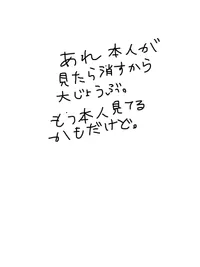 あれ 本人が
見たら消すから
大じょうぶ。
もう本人見てる
かもだけど。